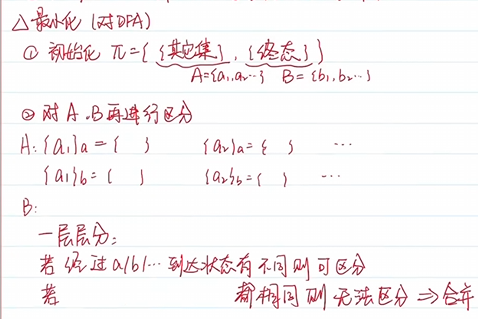 △最小化(对DFA)
① 初始化 π={ {其它集}, {终态} }
A={a₁,a₂…} B={b₁,b₂…}
② 对A.B再进行区分
A: {a₁}a={ } {a₂}a={ } …
{a₁}b={ } {a₂}b={ } …
B:
一层层分:
若经过a/b/…到达状态有不同则可区分
若 都相同则无法区分⇒合并